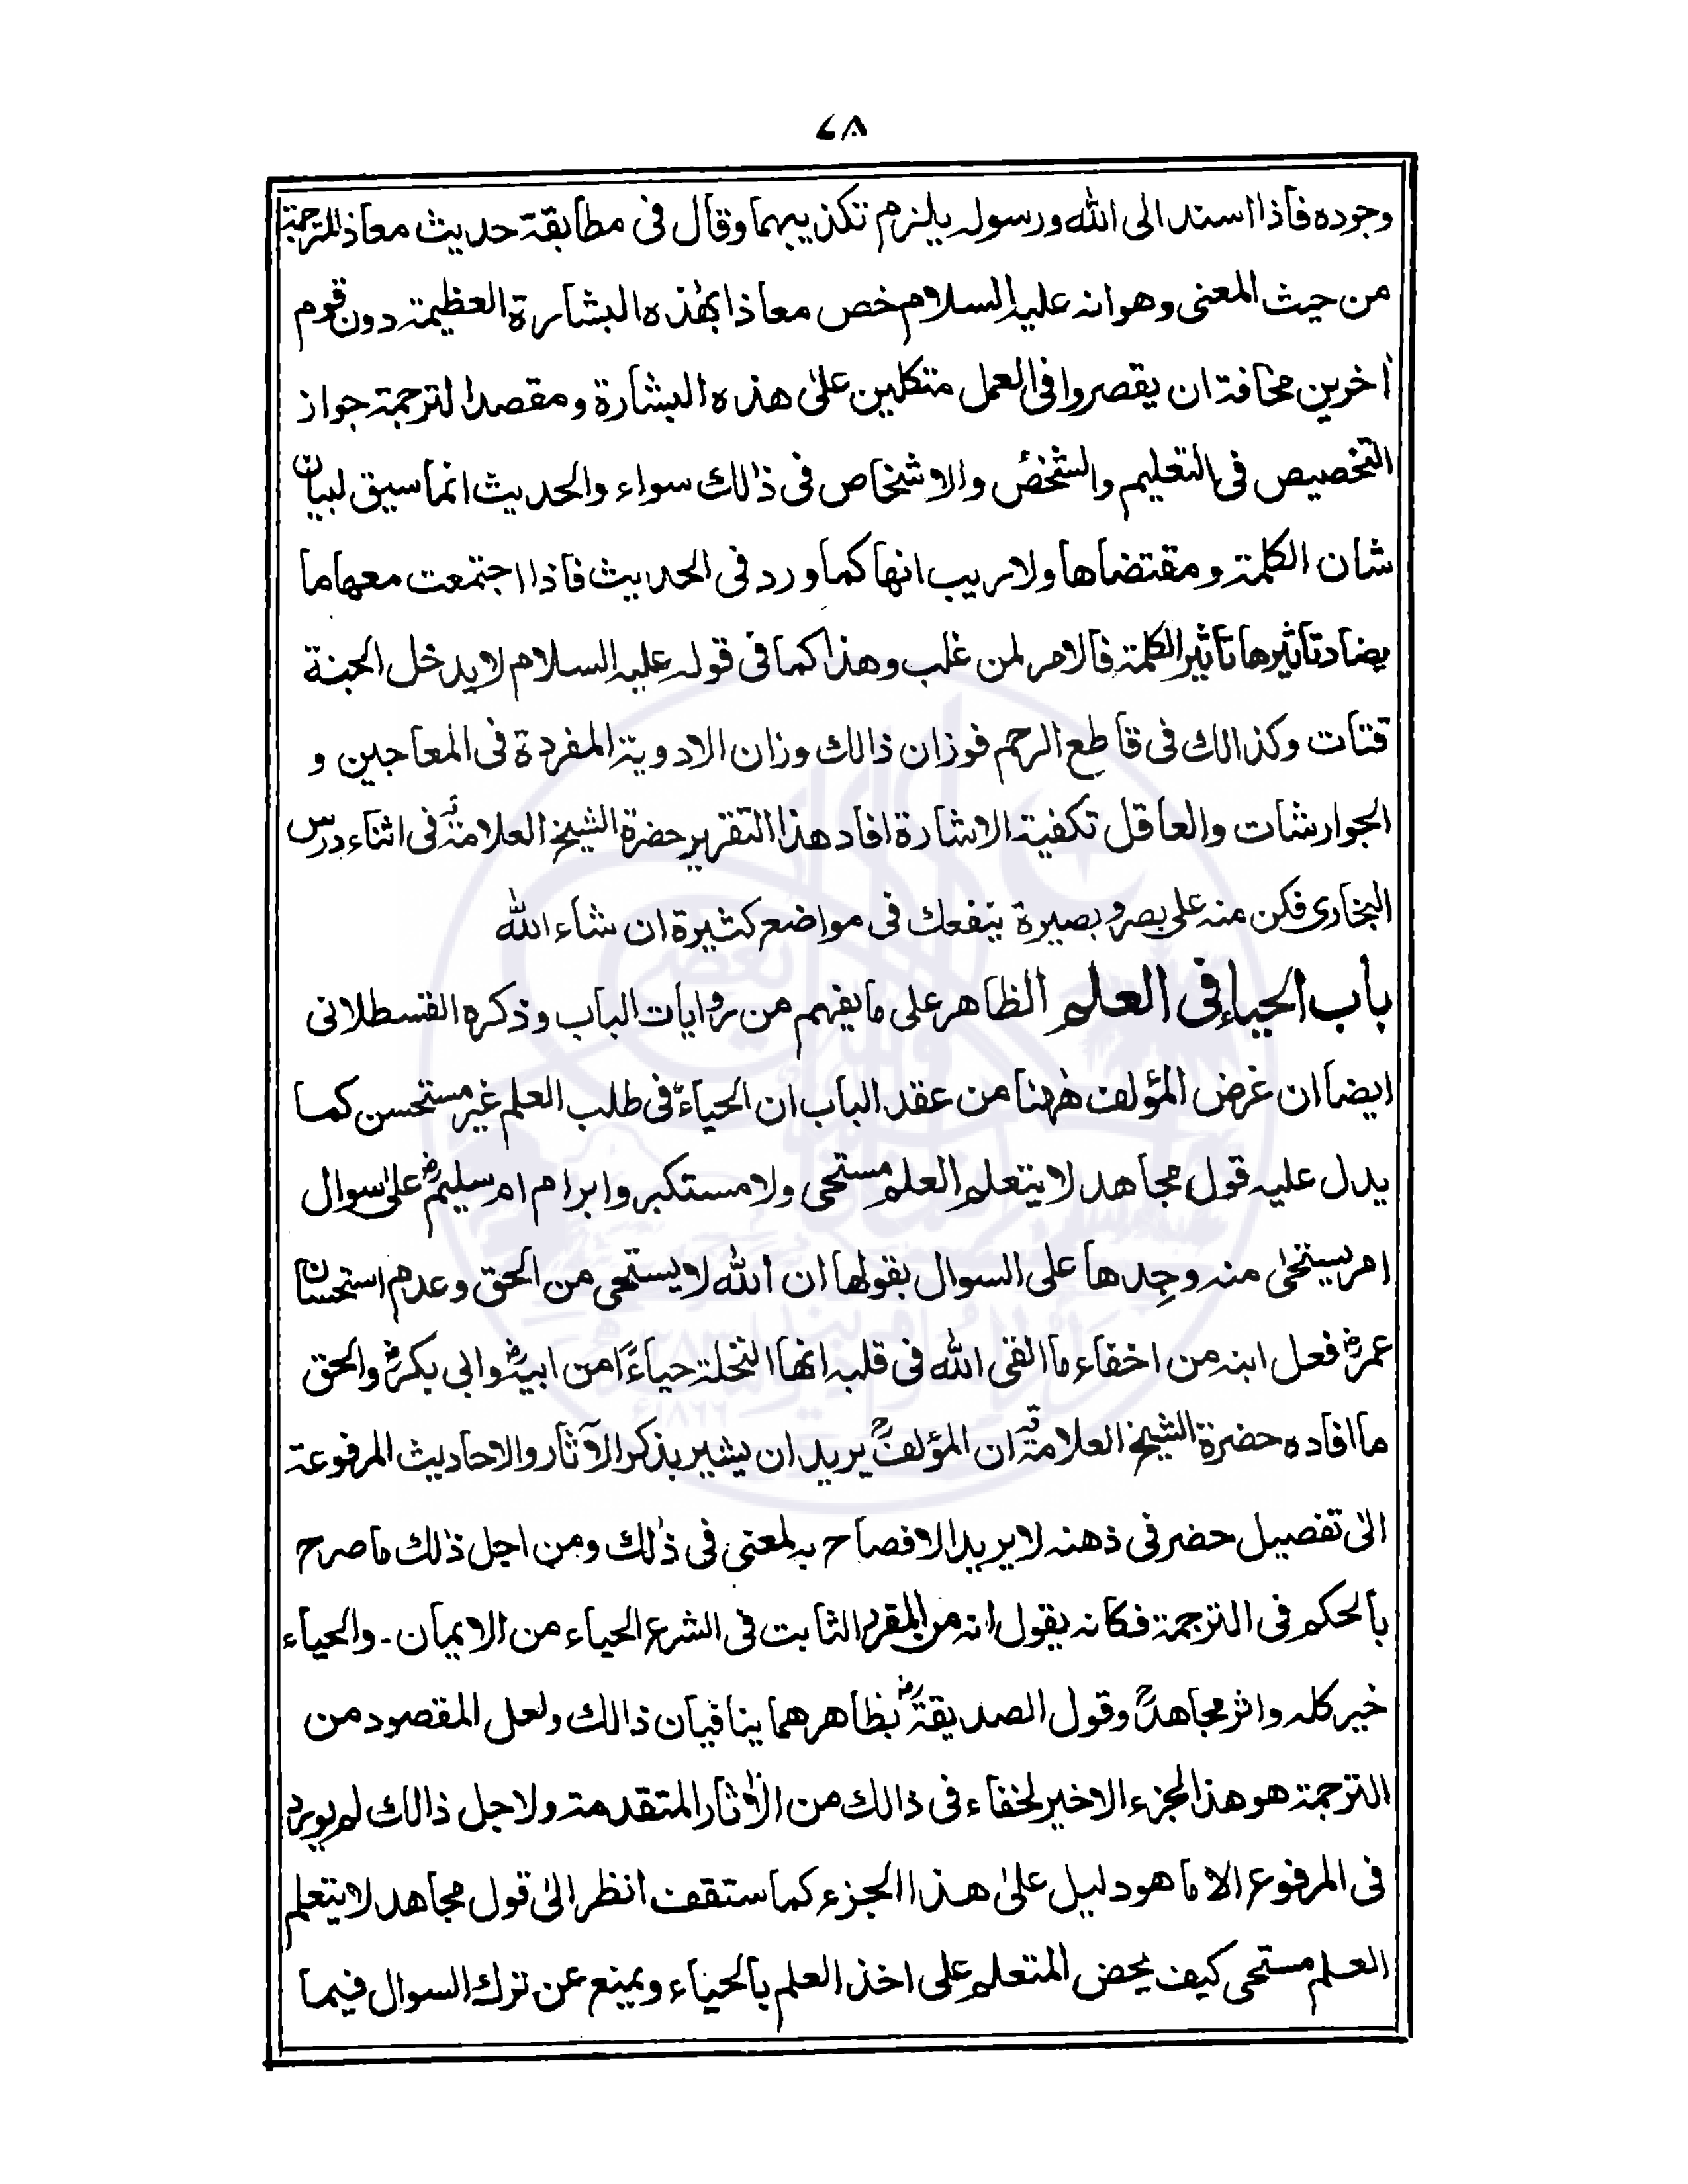 ٧٨
وجوده فاذا اسند الى الله ورسوله يلزم تكذيبهما وقال فى مطابقة حديث معاذ للترجمة
من حيث المعنى وهو انه عليه السلام خص معاذا بهٰذه البشارة العظيمة دون قوم
اٰخرين مخافة ان يقصروا فى العمل متكلين علىٰ هذه البشارة ومقصد الترجمة جواز
التخصيص فى التعليم والشخص والاشخاص فى ذٰلك سواء والحديث انما سيق لبيان
شان الكلمة ومقتضاها ولا ريب انها كما ورد فى الحديث فاذا اجتمعت معها ما
يضاد تاثيرها تاثير الكلمة فالامر لمن غلب وهذا كما فى قوله عليه السلام لا يدخل الجنة
قتات وكذالك فى قاطع الرحم فوزان ذالك وزان الادوية المفردة فى المعاجين و
الجوارشات والعاقل تكفية الاشارة افاد هذا التقرير حضرة الشيخ العلامة فى اثناء درس
البخارى فكن منه على بصر وبصيرة ينفعك فى مواضع كثيرة ان شاء الله
باب الحياء فى العلم الظاهر على ما يفهم من روايات الباب وذكره القسطلانى
ايضا ان غرض المؤلف هٰهنا من عقد الباب ان الحياء فى طلب العلم غير مستحسن كما
يدل عليه قول مجاهد لا يتعلم العلم مستحى ولا مستكبر وابرام ام سليمؓ علىٰ سوال
امر يستحىٰ منه وجِدها على السوال بقولها ان الله لا يستحى من الحق وعدم استحسان
عمرؓ فعل ابنه من اخفاء ما القى الله فى قلبه انها النخلة حياءً من ابيهؓ وابى بكرؓ والحق
ما افاده حضرة الشيخ العلامة ان المؤلفؒ يريد ان يشير بذكر الآثار والاحاديث المرفوعة
الىٰ تفصيل حضر فى ذهنه لا يريد الافصاح به لمعنى فى ذٰلك ومن اجل ذٰلك ما صرح
بالحكم فى الترجمة فكانه يقول انه من المقرر الثابت فى الشرع الحياء من الايمان۔ والحياء
خير كله واثر مجاهدؒ وقول الصديقةؓ بظاهرهما ينافيان ذالك ولعل المقصود من
الترجمة هو هذا الجزء الاخير لخفاء فى ذالك من الاٰثار المتقدمة ولاجل ذالك لم يورد
فى المرفوع الا ما هو دليل علىٰ هذا الجزء كما ستقف انظر الىٰ قول مجاهد لا يتعلم
العلم مستحى كيف يحض المتعلم على اخذ العلم بالحياء ويمنع عن ترك السوال فيما